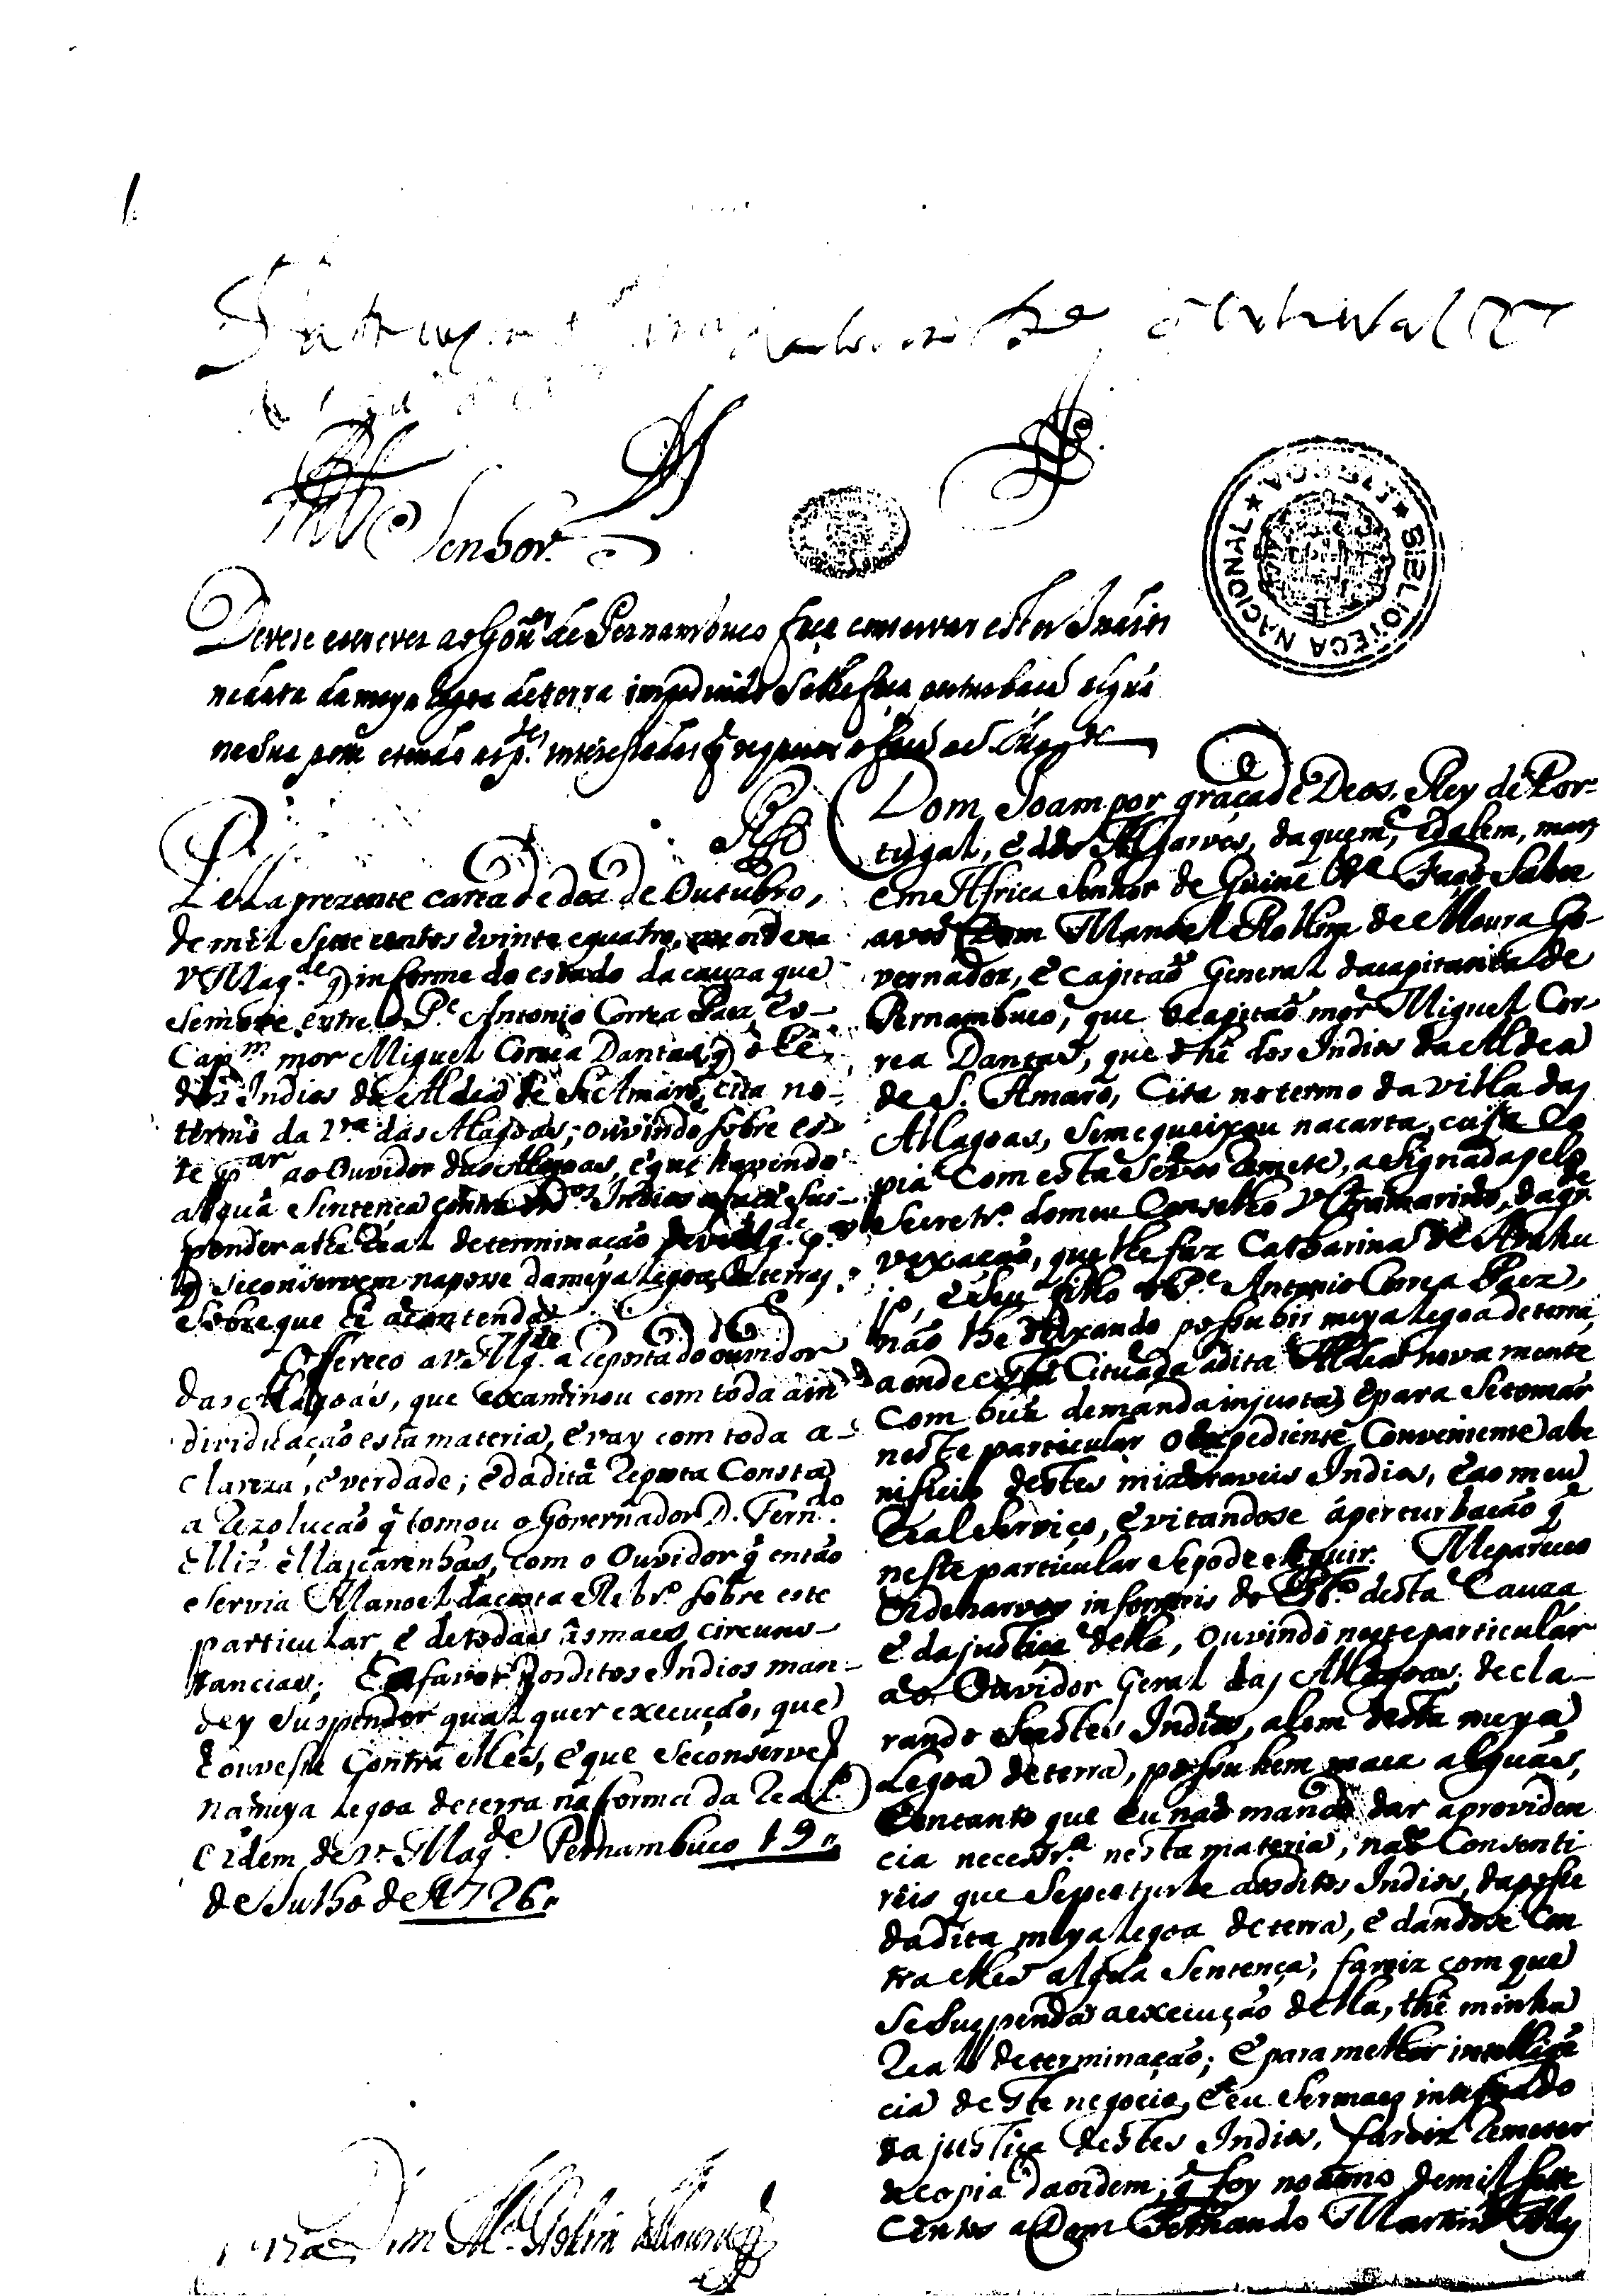 Senhor.
Devese escrever ao Gov.or de Pernambuco faça conservar estes Indios
na data da meya legoa de terra impedindo se lhe faça perturbação algũa
na sua posse
BIBLIOTECA NACIONAL LISBOA
Pella prezente carta de dez de Outubro,
de mil sette centos e vinte e quatro, me ordena
V Mag.de q informe do estado da cauza que
se move entre o P.e Antonio Correa Paez, e o
Cap.m mor Miguel Correa Dantas, q o hê
dos Indios da Aldea de S. Amaro, cita no
termo da V.ra das Alagoas, ouvindo sobre es-
te p.ar ao Ouvidor das Alagoas, e que havendo
algũa Sentença contra os d.os Indios a faça sus-
pender athe Real determinação de V Mag.de p.a
q se conservem na posse da meya legoa de terras
sobre que hê a contenda.
Offereço a V. Mg.de a reposta do ouvidor
das Alagoas, que examinou com toda a in
dividuação esta materia, e vay com toda a
clareza, e verdade; e da dita reposta Consta
a rezolução q̃ tomou o Governador D. Fern.do
Miz Mascarenhas, com o Ouvidor q̃ então
servia Manoel da costa Rebr.o sobre este
particular, e de todas as maes circuns-
tancias; E a favor dos ditos Indios man-
dey suspender qualquer execução, que
houvesse Contra elles, e que se conservem
na meya legoa de terra na forma da Real
Ordem de V. Mag.de Pernambuco 19
de Julho de 1726.
Dom M.el Rolim de Moura
Dom Joam por graça de Deos, Rey de Por-
tugal, e dos Algarves, daquem, e dalem, mar
em Africa Senhor de Guiné &.a Faço Saber
a vos Dom Manoel Rollim de Moura Go-
vernador, e Capitaõ General da capitania de
Pernambuco, que o capitaõ mor Miguel Cor-
rea Dantas, que o hê dos Indios da Aldea
de S. Amaro, Cita no termo da villa das
Allagoas, se me queixou na carta, cuja Co
pia Com esta se vos remete, a Signada pelo
Secretr.o do meu Conselho Ultramarino, da gr.de
vexação, que lhe faz Catharina de Arahu
jo, e seu filho o P.e Antonio Correa Paez,
não lhe deixando possuhir meya legoa de terra,
aonde está Cituada a dita Aldea novamente
com hũa demanda injusta; e para se tomar
neste particular o expediente Conveniente a be
nificio destes mizeraveis Indios, e ao meu
Real Serviço, evitandose a perturbação q̃
neste particular se pode seguir. Me pareceo
Ordenarvos informeis do Est.o desta Cauza
e da justiça della, ouvindo neste particular
ao Ouvidor Geral das Allagoas; decla-
rando se estes Indios, alem desta meya
Legoa de terra, possuhem maez algũas,
Em tanto que eu não mando dar a providen
cia necessr.a nesta materia, não Consenti
reis que se perturbe aos ditos Indios, da posse
da dita meya legoa de terra, e dandose Con
tra elles algũa Sentença, fareiz com que
se Suspenda a execução della, thê minha
Real determinação; e para melhor intelligẽ
cia deste negocio, e eu ser maez inteirado
da justiça destes Indios, fareiz remeter
a copia da ordem, q̃ foy no anno de mil sette
Centos a Dom Fernando Martins Mas